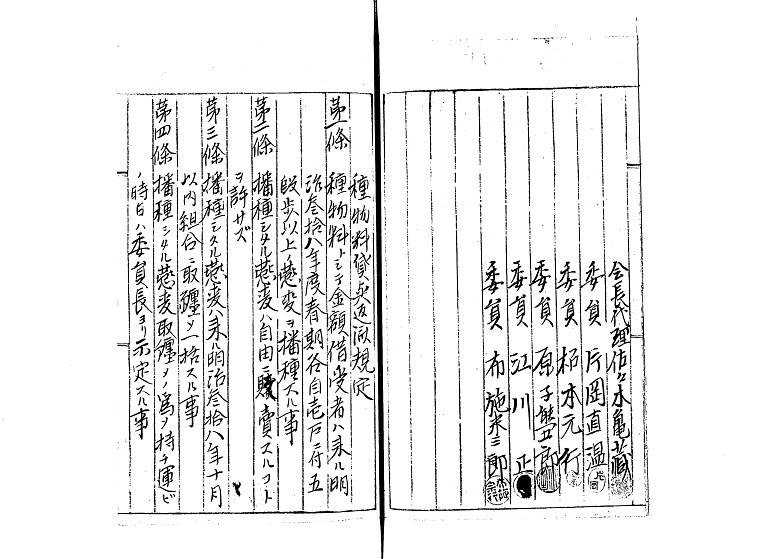 会長代理佐々木亀蔵
委員 片岡直温
委員 柘本元行
委員 原子盤郎
委員 江川正
委員 布施米三郎
種物料貸与返済規定
第一條 種物料トシテ金額借受者ハ来ル明
治叁拾八年度春期各自壱戸ニ付五
段歩以上ノ燕麦ヲ播種スル事
第二條 播種シタル燕麦ハ自由ニ販賣スルコト
ヲ許サズ
第三條 播種シタル燕麦ハ来ル明治叁拾八年十月
以内組合ニ取纏メ一括スル事
第四條 播種シタル燕麦取纏メノ為メ持チ運ビ
ノ時日ハ委員長ヨリ示定スル事